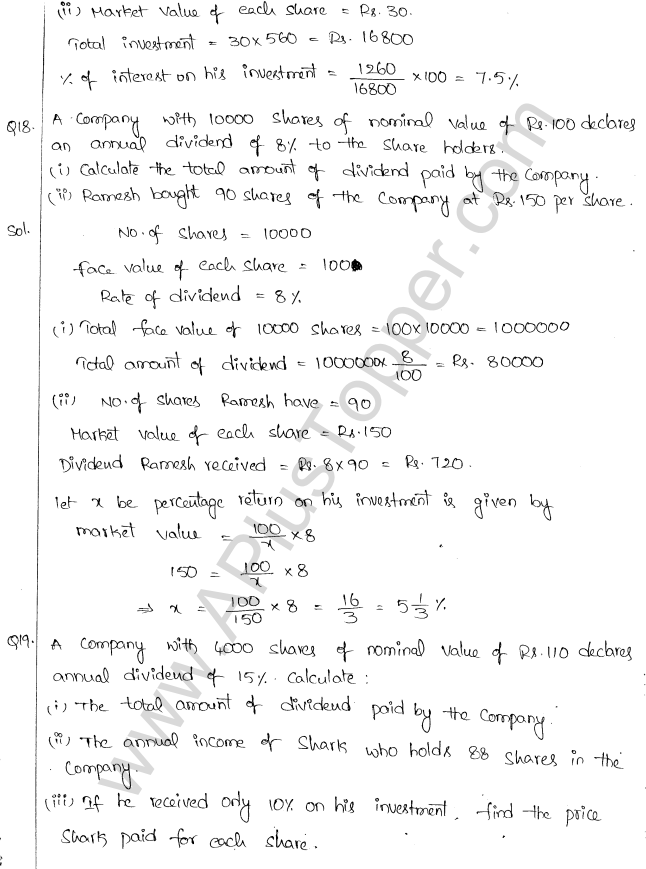 (ii) Market value of each share = Rs. 30.
Total investment = 30×560 = Rs. 16800
% of interest on his investment = 1260/16800 ×100 = 7.5%
Q18. A Company with 10000 shares of nominal value of Rs.100 declares
an annual dividend of 8% to the share holders.
(i) Calculate the total amount of dividend paid by the company.
(ii) Ramesh bought 90 shares of the company at Rs.150 per share.
Sol. No. of shares = 10000
face value of each share = 100
Rate of dividend = 8%
(i) Total face value of 10000 shares = 100×10000 = 1000000
Total amount of dividend = 1000000× 8/100 = Rs. 80000
(ii) No. of shares Ramesh have = 90
Market value of each share = Rs.150
Dividend Ramesh received = Rs.8×90 = Rs. 720.
let x be percentage return on his investment is given by
market value = 100/x ×8
150 = 100/x ×8
⇒ x = 100/150 ×8 = 16/3 = 5 1/3 %.
Q19. A company with 4000 shares of nominal value of Rs.110 declares
annual dividend of 15%. Calculate :
(i) The total amount of dividend paid by the company.
(ii) The annual income of Shark who holds 88 shares in the
company.
(iii) If he received only 10% on his investment, find the price
Shark paid for each share.
www.APlusTopper.com